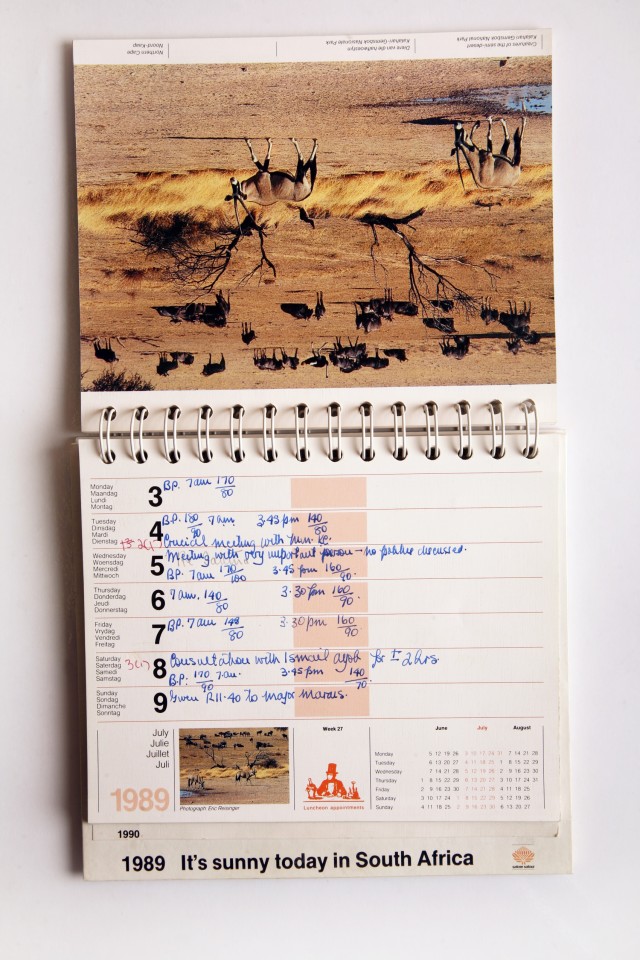 Creatures of the semi-desert
Kalahari Gemsbok National Park
Diere van die halfwoestyn
Kalahari-Gemsbok Nasionale Park
Northern Cape
Noord-Kaap
Monday
Maandag
Lundi
Montag
3
BP. 7am 170/80
Tuesday
Dinsdag
Mardi
Dienstag
4
BP. 180/90 7am 3.45pm 140/80
Crucial meeting with
Wednesday
Woensdag
Mercredi
Mittwoch
5
Meeting with very important person - no politics discussed.
BP. 7am 170/100 3.45 pm 160/90.
Thursday
Donderdag
Jeudi
Donnerstag
6
7am. 140/80 3.30pm 160/90.
Friday
Vrydag
Vendredi
Freitag
7
BP. 7am 148/80 3.30pm 160/90
Saturday
Saterdag
Samedi
Samstag
8
Consultation with Ismail Ayob for ± 2 hrs.
BP: 170/90 7am. 3.45pm 140/70.
Sunday
Sondag
Dimanche
Sonntag
9
Given R11.40 to Major Marais.
July
Julie
Juillet
Juli
1989
Photograph: Eric Reisinger
Week 27
Luncheon appointments
June July August
Monday 5 12 19 26 3 10 17 24 31 7 14 21 28
Tuesday 6 13 20 27 4 11 18 25 1 8 15 22 29
Wednesday 7 14 21 28 5 12 19 26 2 9 16 23 30
Thursday 1 8 15 22 29 6 13 20 27 3 10 17 24 31
Friday 2 9 16 23 30 7 14 21 28 4 11 18 25
Saturday 3 10 17 24 1 8 15 22 29 5 12 19 26
Sunday 4 11 18 25 2 9 16 23 30 6 13 20 27
1990
1989 It's sunny today in South Africa